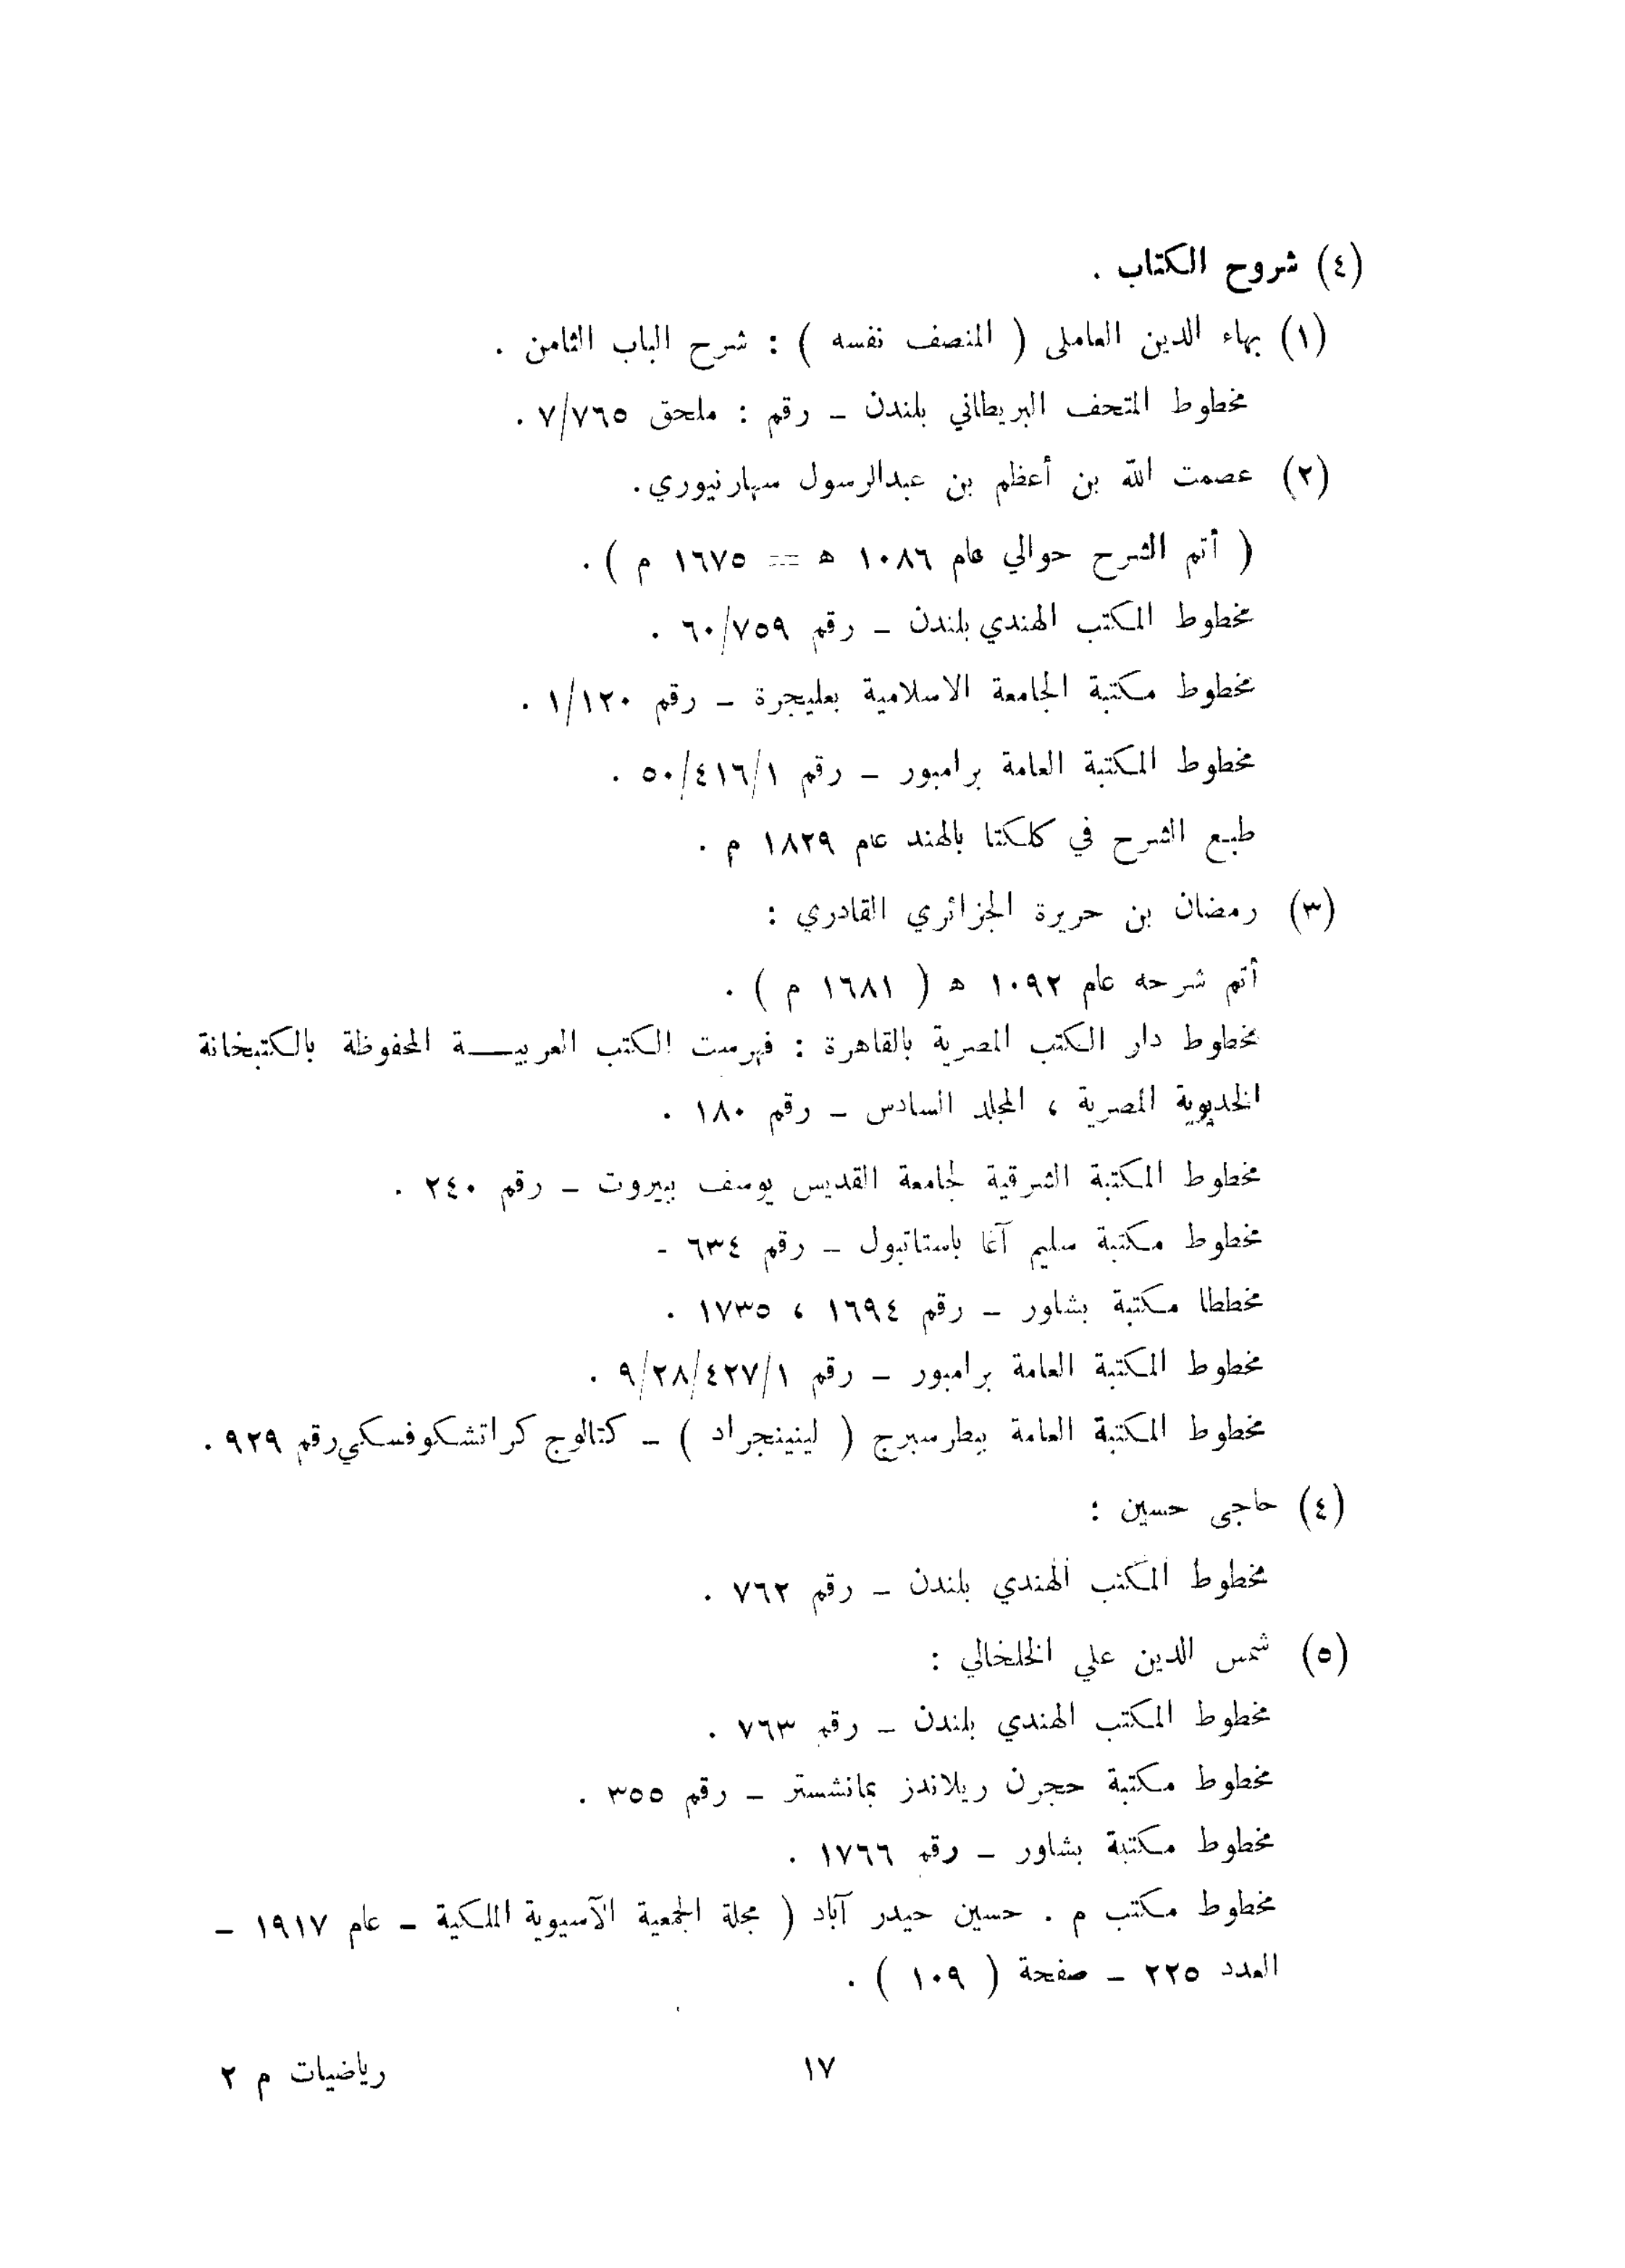 (٤) شروح الكتاب .
(١) بهاء الدين العاملى ( المنصف نفسه ) : شرح الباب الثامن .
مخطوط المتحف البريطاني بلندن – رقم : ملحق ٧/٧٦٥ .
(٢) عصمت الله بن أعظم بن عبدالرسول سهارنيوري.
( أتم الشرح حوالي عام ١٠٨٦ ه == ١٦٧٥ م ) .
مخطوط المكتب الهندي بلندن – رقم ٦٠/٧٥٩ .
مخطوط مكتبة الجامعة الاسلامية بعليجرة – رقم ١/١٢٠ .
مخطوط المكتبة العامة برامبور – رقم ٥٠/٤١٦/١ .
طبع الشرح في كلكتا بالهند عام ١٨٢٩ م .
(٣) رمضان بن حريرة الجزائري القادري :
أتم شرحه عام ١٠٩٢ ه ( ١٦٨١ م ) .
مخطوط دار الكتب المصرية بالقاهرة : فهرست الكتب العربيـــة المحفوظة بالكتبخانة
الخديوية المصرية ، المجلد السادس – رقم ١٨٠ .
مخطوط المكتبة الشرقية لجامعة القديس يوسف ببيروت – رقم ٢٤٠ .
مخطوط مكتبة سليم آغا باستاتبول – رقم ٦٣٤ -
مخططا مكتبة بشاور – رقم ١٦٩٤ ، ١٧٣٥ .
مخطوط المكتبة العامة برامبور – رقم ٩/٢٨/٤٢٧/١ .
مخطوط المكتبة العامة ببطرسبرج ( لينينجراد ) – كتالوج كراتشكوفسكي رقم ٩٢٩ .
(٤) حاجى حسين :
مخطوط المكتب الهندي بلندن – رقم ٧٦٢ .
(٥) شمس الدين علي الخلخالي :
مخطوط المكتب الهندي بلندن – رقم ٧٦٣ .
مخطوط مكتبة حجرن ريلاندز بمانشستر – رقم ٣٥٥ .
مخطوط مكتبة بشاور – رقم ١٧٦٦ .
مخطوط مكتب م . حسين حيدر آباد ( مجلة الجمعية الآسيوية الملكية – عام ١٩١٧ –
العدد ٢٢٥ – صفحة ( ١٠٩ ) .
١٧
رياضيات م ٢